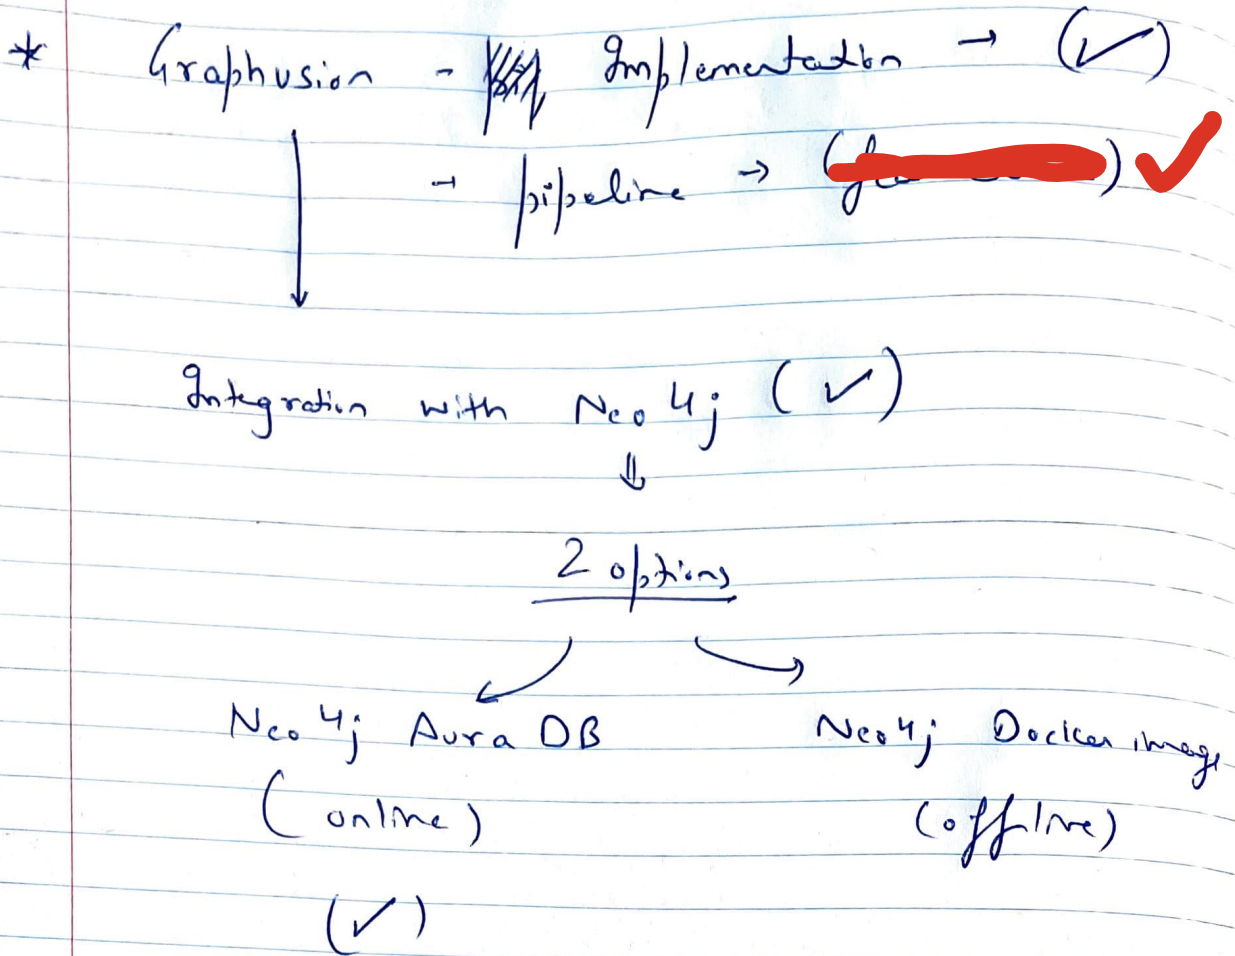 * Graphusion - Implementation → (✓)
→ pipeline → ( ) ✓
Integration with Neo4j (✓)
⇓
2 options
Neo4j Aura DB Neo4j Docker image
(online) (offline)
(✓)